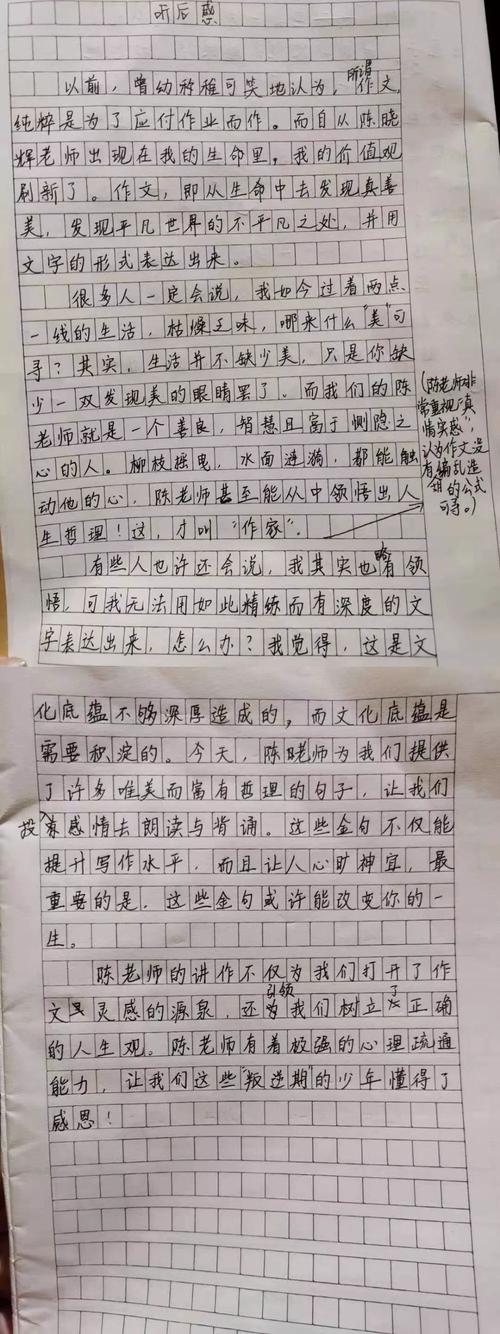 听后感
以前，曾幼稚可笑地认为，所谓作文，
纯粹是为了应付作业而作。而自从陈晓
辉老师出现在我的生命里，我的价值观
刷新了。作文，即从生命中去发现真善
美，发现平凡世界的不平凡之处，并用
文字的形式表达出来。
很多人一定会说，我如今过着两点
一线的生活，枯燥乏味，哪来什么"美"可
寻？其实，生活并不缺少美，只是你缺
少一双发现美的眼睛罢了。而我们的陈
老师就是一个善良，智慧且富于恻隐之
心的人。柳枝摇曳，水面涟漪，都能触
动他的心，陈老师甚至能从中领悟出人
生哲理！这，才叫"作家"。
(陈老师非
常重视"真
情实感"，
认为作文没
有编乱造
的公式
可寻。)
有些人也许还会说，我其实也略有领
悟，可我无法用如此精练而有深度的文
字表达出来，怎么办？我觉得，这是文
化底蕴不够深厚造成的，而文化底蕴是
需要积淀的。今天，陈老师为我们提供
了许多唯美而富有哲理的句子，让我们
投入感情去朗读与背诵。这些金句不仅能
提升写作水平，而且让人心旷神宜，最
重要的是，这些金句或许能改变你的一
生。
陈老师的讲作不仅为我们打开了作
文灵感的源泉，还引领我们树立了正确
的人生观。陈老师有着极强的心理疏通
能力，让我们这些"叛逆期"的少年懂得了
感恩！